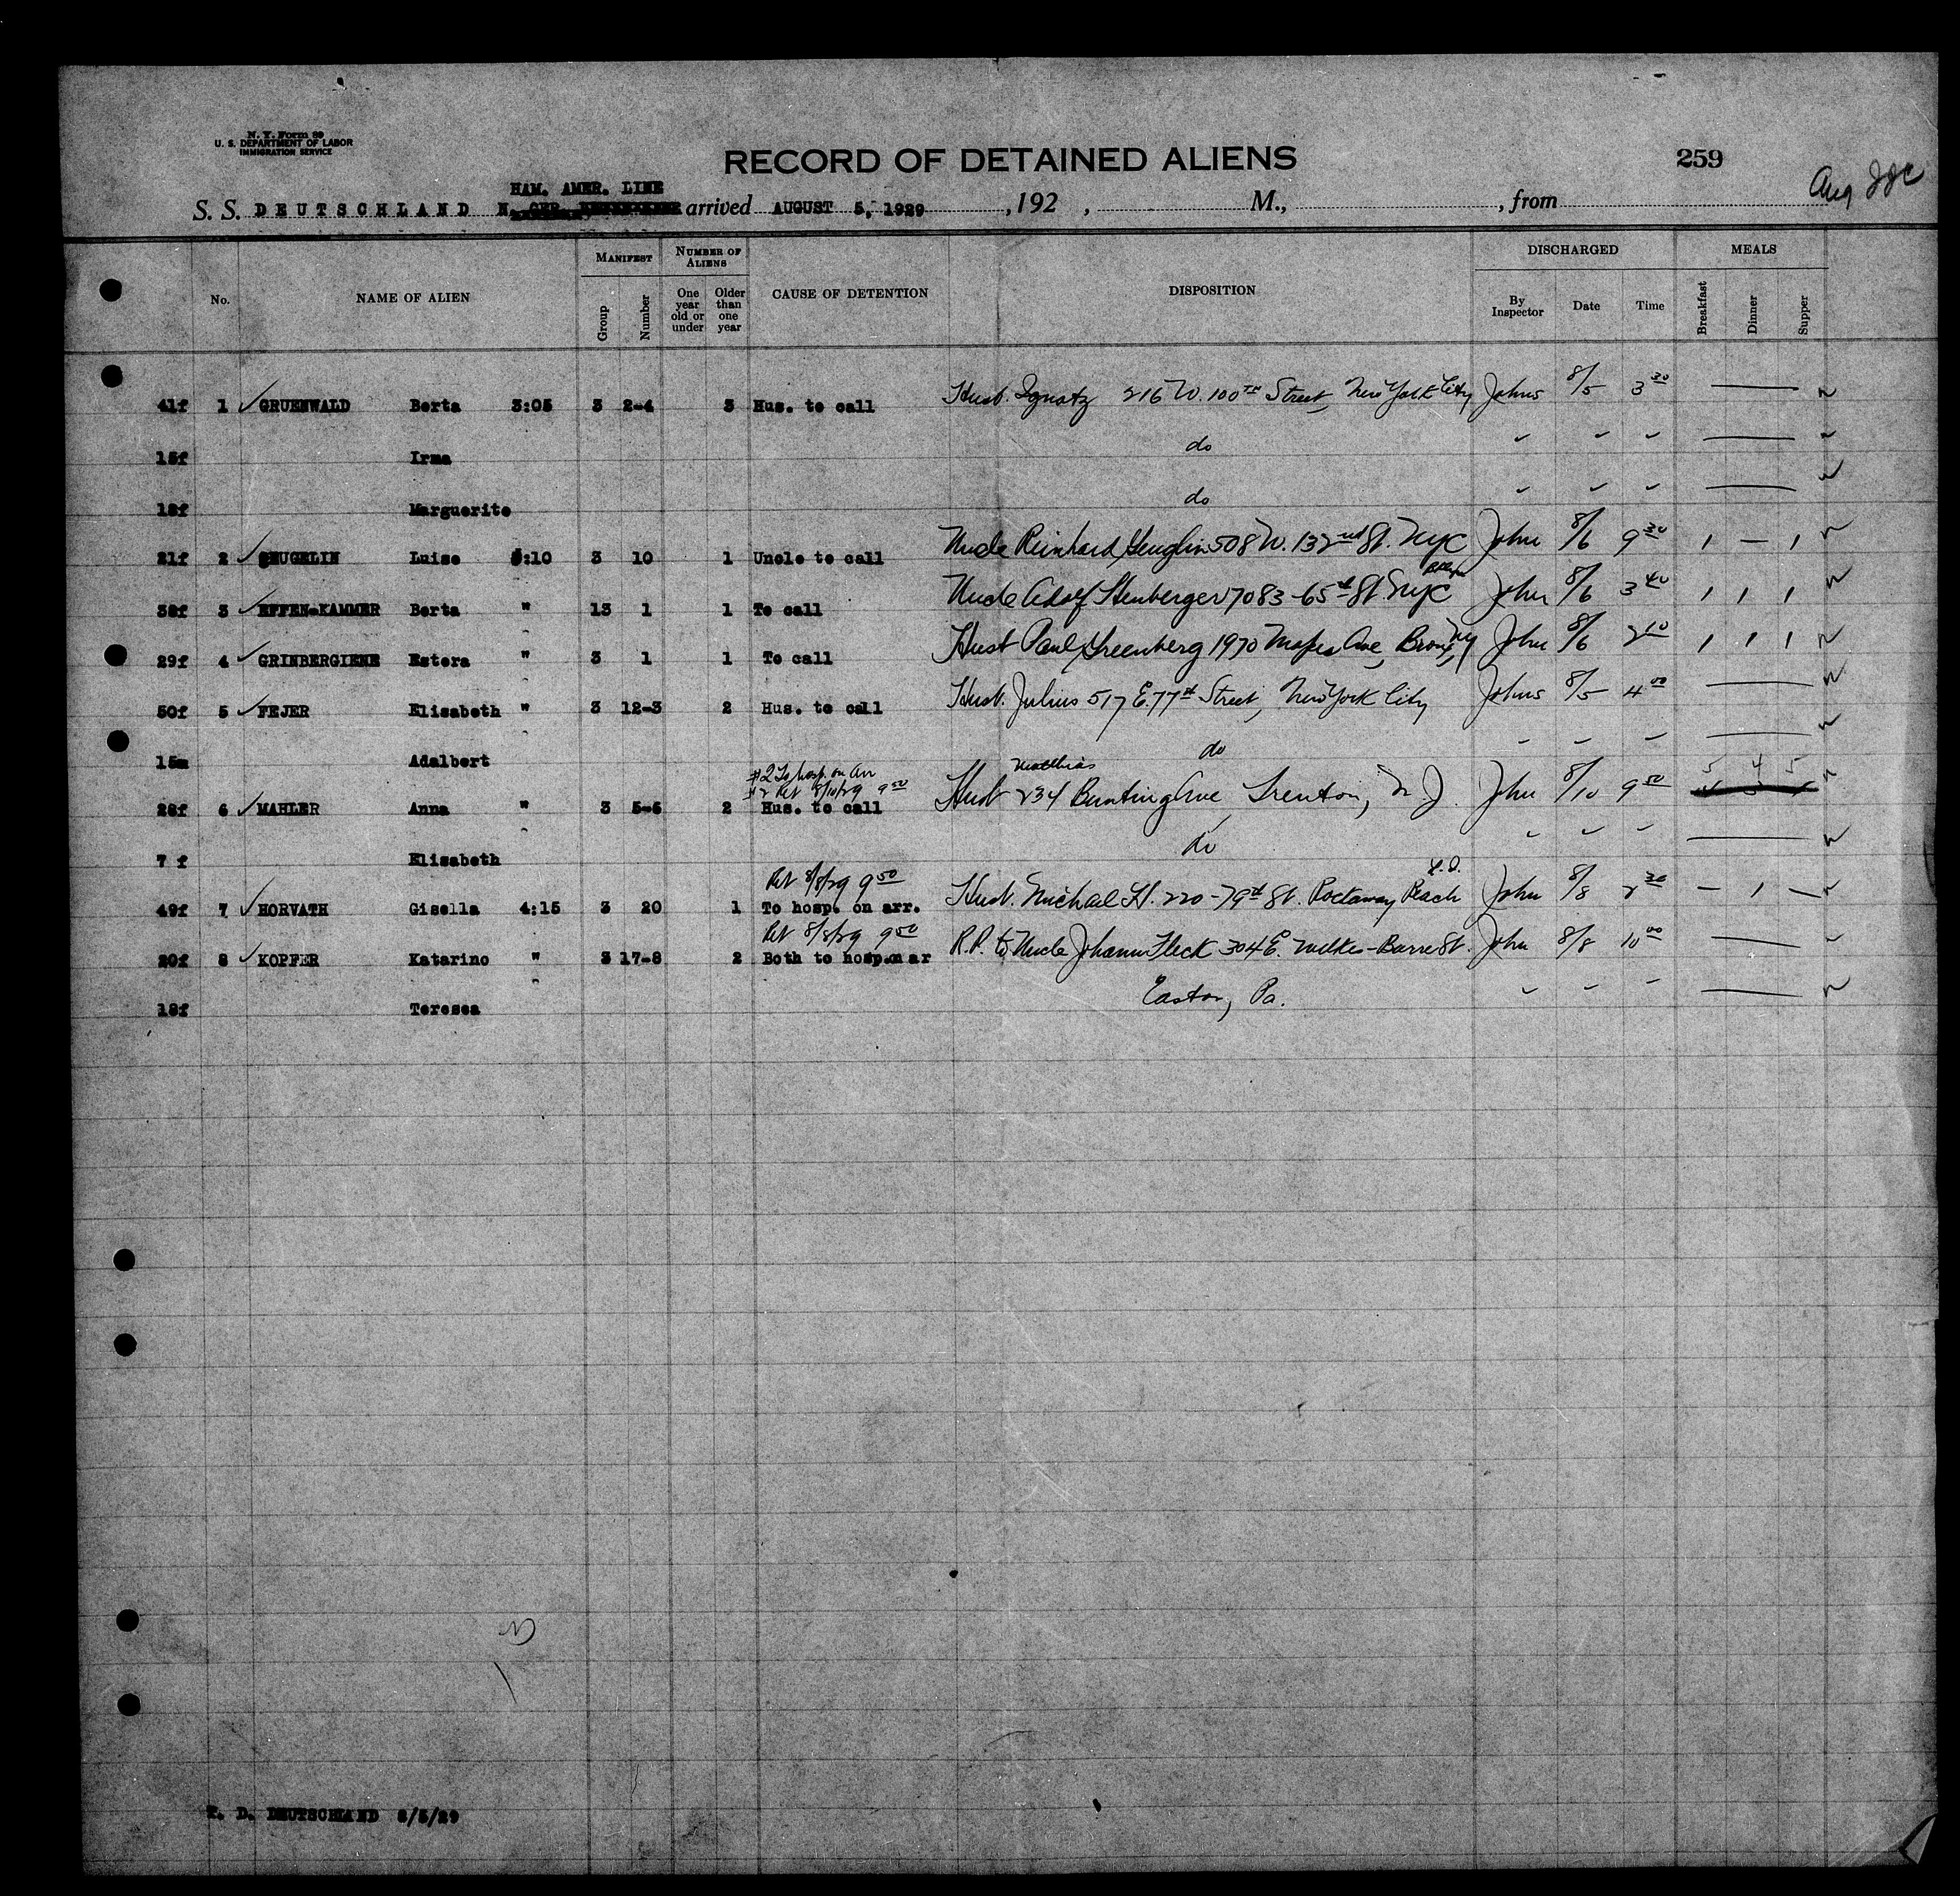 N. Y. Form 89
U. S. DEPARTMENT OF LABOR
IMMIGRATION SERVICE
RECORD OF DETAINED ALIENS
259
HAM. AMER. LINE
S. S. DEUTSCHLAND N. GER. arrived AUGUST 5, 1929 , 192 , M., , from
Aug
No. NAME OF ALIEN MANIFEST Group Number NUMBER OF ALIENS One year old or under Older than one year CAUSE OF DETENTION DISPOSITION DISCHARGED By Inspector Date Time MEALS Breakfast Dinner Supper
41f 1 ✓ GRUENWALD Berta 3:05 3 2-4 3 Hus. to call Husb. Ignatz 216 W. 100TH Street, New York City Johns 8/5 3 30 —
15f Irma do " " " —
18f Marguerite do " " " —
21f 2 ✓ Luise 5:10 3 10 1 Uncle to call Uncle Reinhard Heuglin 508 W. 132nd St. NYC John 8/6 9 30 1 — 1
38f 3 ✓ EFFEN-KAMMER Berta " 13 1 1 To call Uncle Adolf 7083-65th St NYC Bklyn John 8/6 3 40 1 1 1
29f 4 ✓ GRINBERGIENE Estera " 3 1 1 To call Husb Paul Greenberg 1970 Mapes Ave, Bronx, NY John 8/6 2 10 1 1 1
50f 5 ✓ FEJER Elisabeth " 3 12-3 2 Hus. to call Husb. Julius 517 E. 77th Street, New York City Johns 8/5 4 00 —
15m Adalbert " do " " " —
#2 To hosp. on arr
#2 Ret 8/10/29 9 50
28f 6 ✓ MAHLER Anna " 3 5-6 2 Hus. to call Husb Matthias 234 Bunting Ave Trenton, N J. John 8/10 9 50 5 4 5
7 f Elisabeth " do " " " —
Ret 8/8/29 9 50
49f 7 ✓ HORVATH Gisella 4:15 3 20 1 To hosp. on arr. Husb. Michael H. 220-79th St. Rockaway Beach L.I. John 8/8 2 30 — 1 —
Ret 8/8/29 9 50
20f 8 ✓ KOPFER Katarino " 3 17-8 2 Both to hosp.on ar R.R. to Uncle Johann Fleck 304 E. Wilkes-Barre St. John 8/8 10 00 —
18f Teresea " Easton, Pa. " " " —
T. D. DEUTSCHLAND 8/5/29